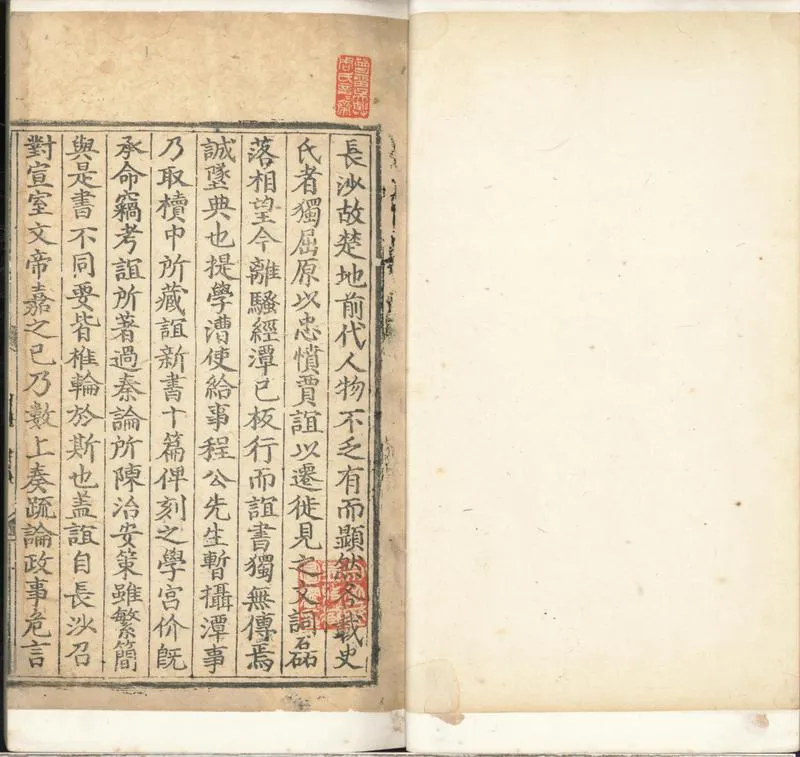 長沙故楚地前代人物不乏有而顯然各載史
氏者獨屈原以忠憤賈誼以遷徙見之文詞磊
落相望今離騷經潭已板行而誼書獨無傳焉
誠墜典也提學漕使給事程公先生暫攝潭事
乃取櫝中所藏誼新書十篇俾刻之學宮价既
承命竊考誼所著過秦論所陳治安策雖繁簡
與是書不同要皆椎輪於斯也盖誼自長沙召
對宣室文帝嘉之已乃數上奏疏論政事危言